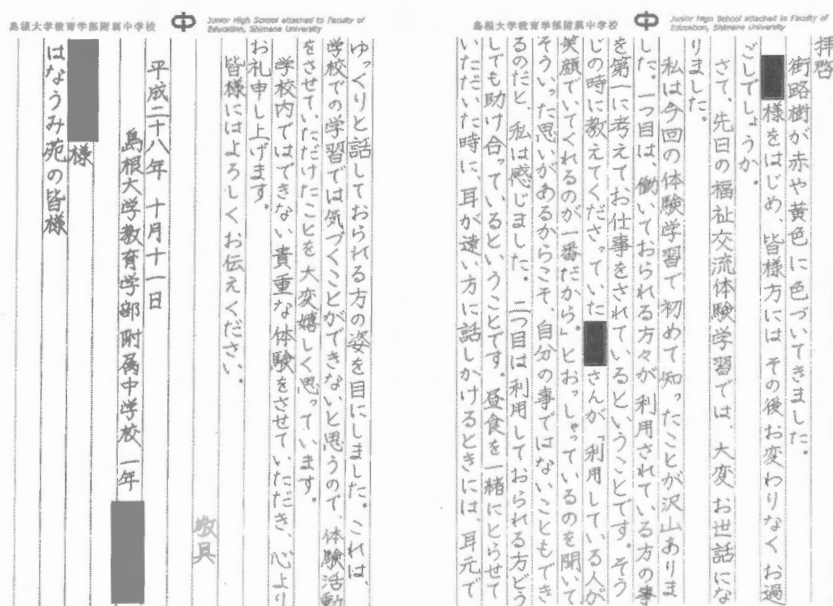 島根大学教育学部附属中学校
Junior High School attached to Faculty of
Education, Shimane University
拝啓
街路樹が赤や黄色に色づいてきました。
様をはじめ、皆様方には その後お変わりなく お過
ごしでしょうか。
さて、先日の福祉交流体験学習では、大変 お世話にな
りました。
私は今回の体験学習で初めて知ったことが沢山ありま
した。一つ目は、働いておられる方々が利用されている方の事
を第一に考えてお仕事をされているということです。そう
じの時に教えてくださっていた
さんが、「利用している人が
笑顔でいてくれるのが一番だから」とおっしゃっているのを聞いて
そういった思いがあるからこそ、自分の事ではないこともでき
るのだと、私は感じました。二つ目は利用しておられる方どう
しでも助け合っているということです。昼食を一緒にとらせて
いただいた時に、耳が遠い方に話しかけるときには、耳元で
島根大学教育学部附属中学校
Junior High School attached to Faculty of
Education, Shimane University
ゆっくりと話しておられる方の姿を目にしました。これは、
学校での学習では気づくことができないと思うので、体験活動
をさせていただけたことを大変嬉しく思っています。
学校内ではできない貴重な体験をさせていただき、心より
お礼申し上げます。
皆様にはよろしくお伝えください。
敬具
平成二十八年 十月十一日
島根大学教育学部附属中学校 一年
様
はなうみ苑の皆様